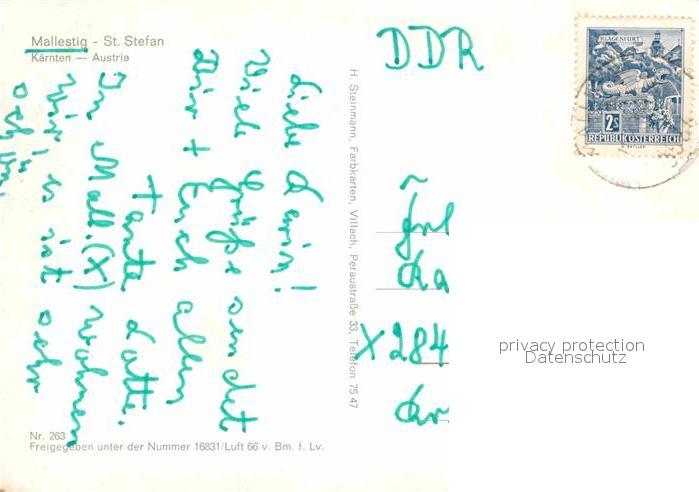 Mallestig - St. Stefan
Kärnten — Austria
Liebe Karin!
Viele Grüße sendet
Dir + Euch allen
Tante Lotte.
In Mall.(X) wohnen
wir, es ist sehr
schön.
H. Steinmann, Farbkarten, Villach, Peraustraße 33, Telefon 75 47
DDR
KLAGENFURT
2S
REPUBLIK ÖSTERREICH
Frl
Ka
X 284
privacy protection
Datenschutz
Nr. 263
Freigegeben unter der Nummer 16831/Luft 66 v. Bm. f. Lv.